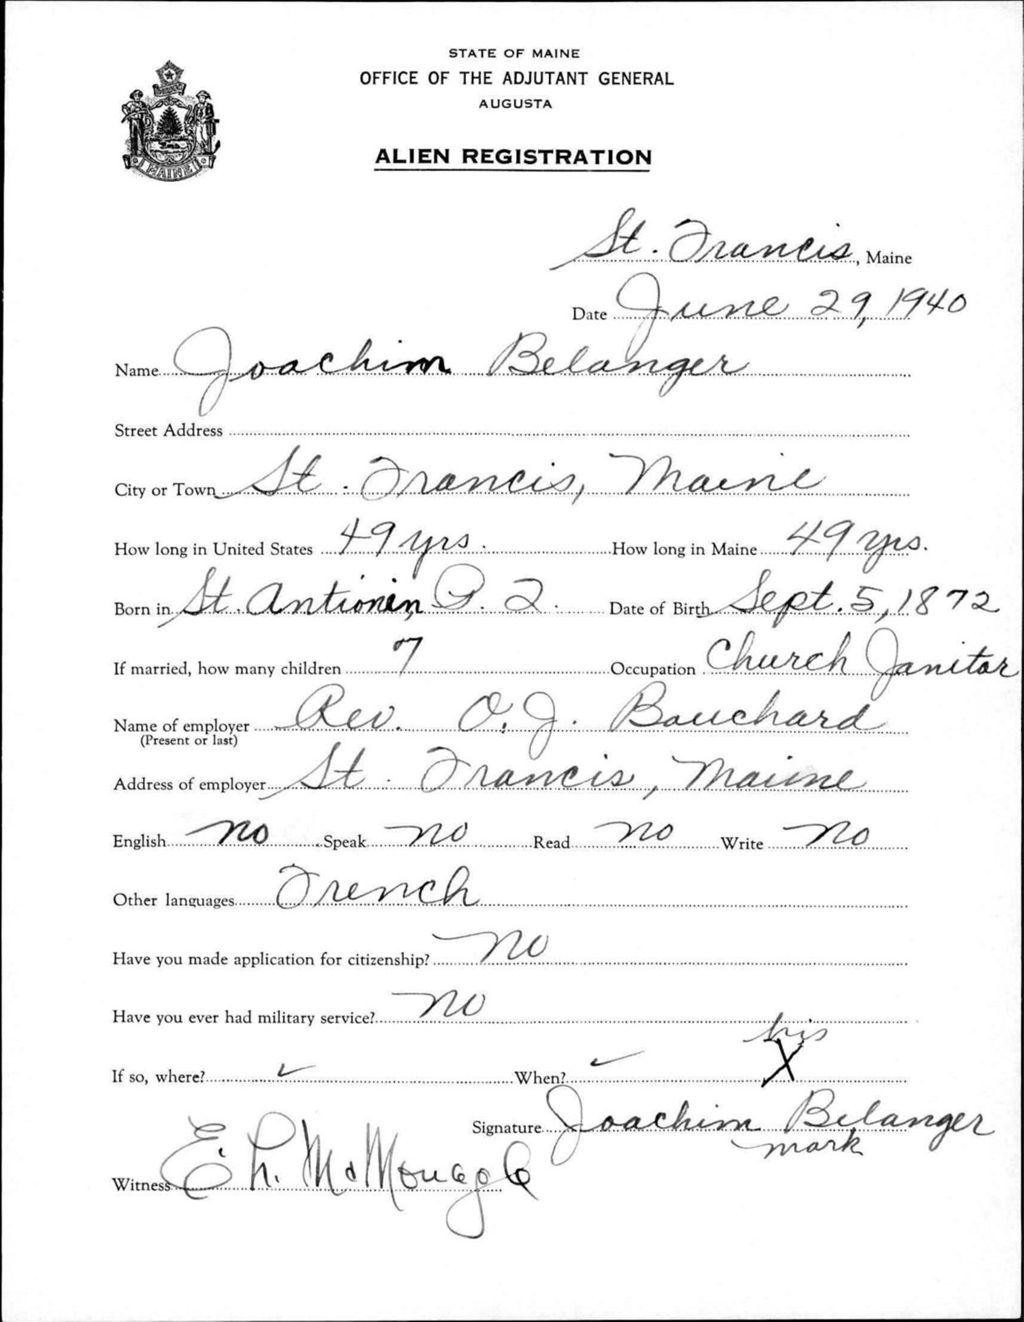 STATE OF MAINE
OFFICE OF THE ADJUTANT GENERAL
AUGUSTA
ALIEN REGISTRATION
MAINE
St. Francis, Maine
Date June 29, 1940
Name Joachim Belanger
Street Address
City or Town St. Francis, Maine
How long in United States 49 yrs. How long in Maine 49 yrs.
Born in St. P. Q. Date of Birth Sept. 5, 1872
If married, how many children 7 Occupation Church Janitor
Name of employer Rev. O. J. Bouchard
(Present or last)
Address of employer St. Francis, Maine
English No Speak No Read No Write No
Other languages French
Have you made application for citizenship? No
Have you ever had military service? No
his
If so, where? ✓ When? ✓ X
Signature Joachim Belanger
mark
Witness E. L. McMonagle